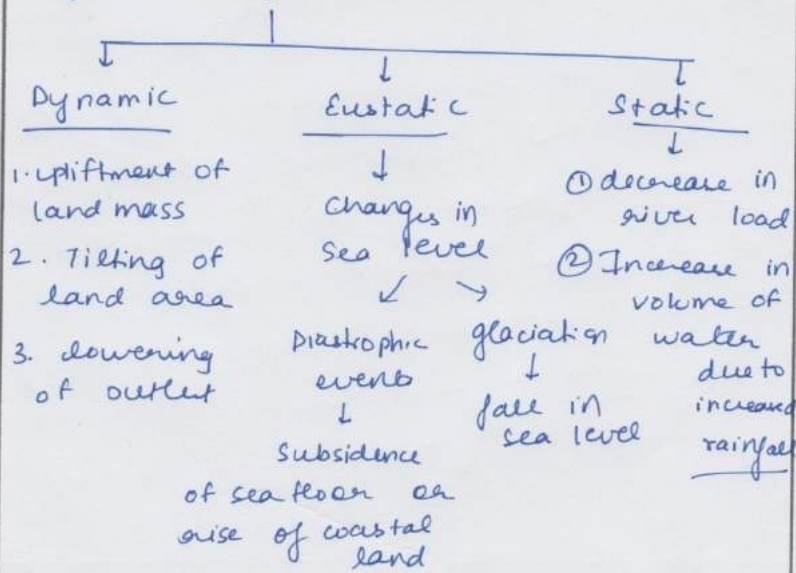 Dynamic
1. upliftment of
land mass
2. Tilting of
land area
3. lowering
of outlet
Eustatic
changes in
sea level
Diastrophic
events
Subsidence
of sea floor or
rise of coastal
land
glaciation
fall in
sea level
Static
① decrease in
river load
② Increase in
volume of
water
due to
increased
rainfall